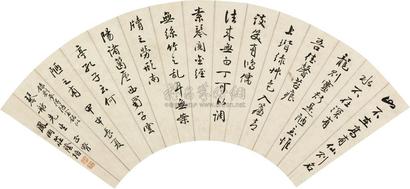 山不在高有仙則名
水不在深有
龍則靈斯是陋室惟
吾德馨苔痕
上階綠草色入簾青
談笑有鴻儒
往來無白丁可以調
素琴閱金經
無絲竹之亂耳無案
牘之勞形南
陽諸葛廬西蜀子雲
亭孔子云何
陋之有 甲申長夏